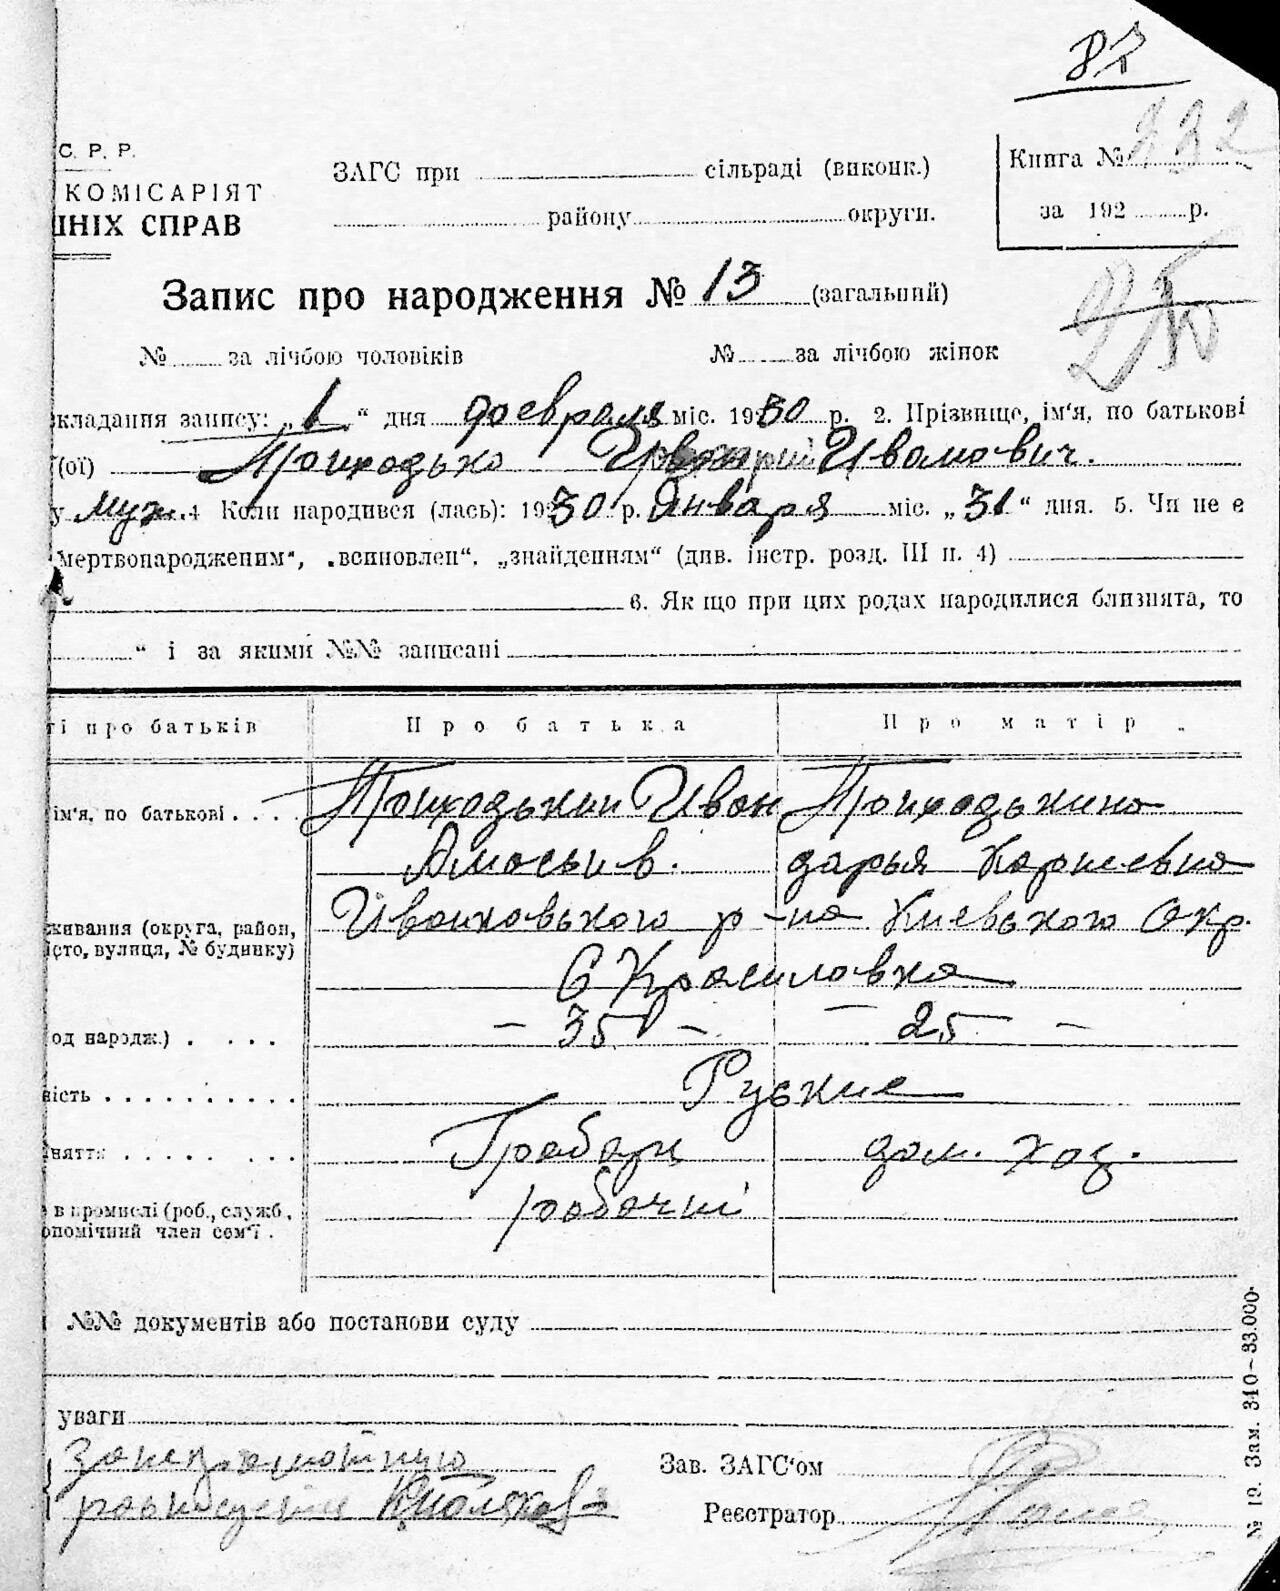 87
С. Р. Р.
КОМІСАРІЯТ
ШНІХ СПРАВ
ЗАГС при сільраді (виконк.)
району округи.
Книга № 232
за 192 р.
Запис про народження № 13 (загальний)
№ за лічбою чоловіків № за лічбою жінок
складання запису: „1“ дня февраля міс. 1930 р. 2. Прізвище, ім'я, по батькові
(ої) Приходько Григорий Ивамович.
у муж. 4 Коли народився (лась): 1930 р. Января міс. „31“ дня. 5. Чи не є
„мертвонародженим“, „всиновлен“, „знайденням“ (див. інстр. розд. III п. 4)
6. Як що при цих родах народилися близнята, то
“ і за якими №№ записані
ті про батьків Про батька Про матір
ім'я, по батькові . . . . Приходький Иван Приходькина
Амосьив. дарья Корнеевна
живання (округа, район, Иванковського р-на Киевського Окр.
істо, вулиця, № будинку) С Красиловка
од народж.) . . . . — 35 — — 25 —
вість . . . . . . . . . . Руские
няття . . . . . . . . . Грабарь дом. хоз.
в промислі (роб., служб, рабочий
опомічний член сем'ї .
№№ документів або постанови суду
уваги
за неграмотную
росписалси
Зав. ЗАГС'ом
Реєстратор
№ 19. Зам. 340—33.000.